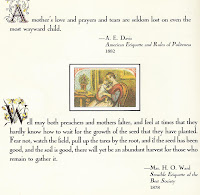 A mother's love and prayers and tears are seldom lost on even the
most wayward child.
—A. E. Davis
American Etiquette and Rules of Politeness
1882
Well may both preachers and mothers falter, and feel at times that they
hardly know how to wait for the growth of the seed that they have planted.
Fear not, watch the field, pull up the tares by the root, and if the seed has been
good, and the soil is good, there will yet be an abundant harvest for those who
remain to gather it.
—Mrs. H. O. Ward
Sensible Etiquette of the
Best Society
1878